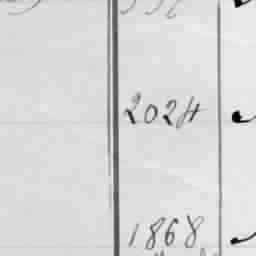 2024
1868